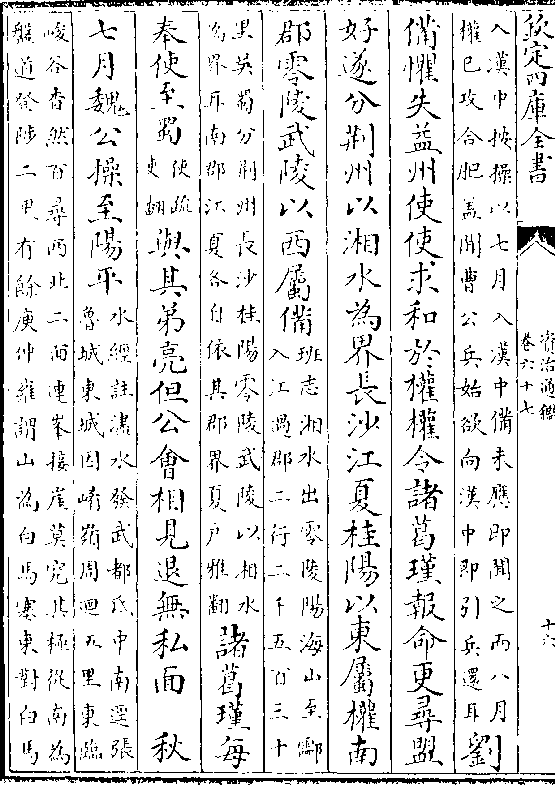 欽定四庫全書
資治通鑑
卷六十七
十六
入漢中按操以七月入漢中備未應即聞之而八月
權已攻合肥蓋聞曹公兵始欲向漢中即引兵還耳
劉
備懼失益州使使求和於權權令諸葛瑾報命更尋盟
好遂分荆州以湘水為界長沙江夏桂陽以東屬權南
郡零陵武陵以西屬備
班志湘水出零陵陽海山至酃
入江過郡二行二千五百三十
里吳蜀分荆州長沙桂陽零陵武陵以湘水
為界耳南郡江夏各自依其郡界夏戶雅翻
諸葛瑾每
奉使至蜀
使疏
吏翻
與其弟亮但公會相見退無私面
秋
七月魏公操至陽平
水經註濜水發武都氐中南逕張
魯城東城因崤嶺周迴五里東臨
峻谷杳然百尋西北二面連峯接崖莫究其極從南為
盤道登陟二里有餘庾仲雍謂山為白馬塞東對白馬